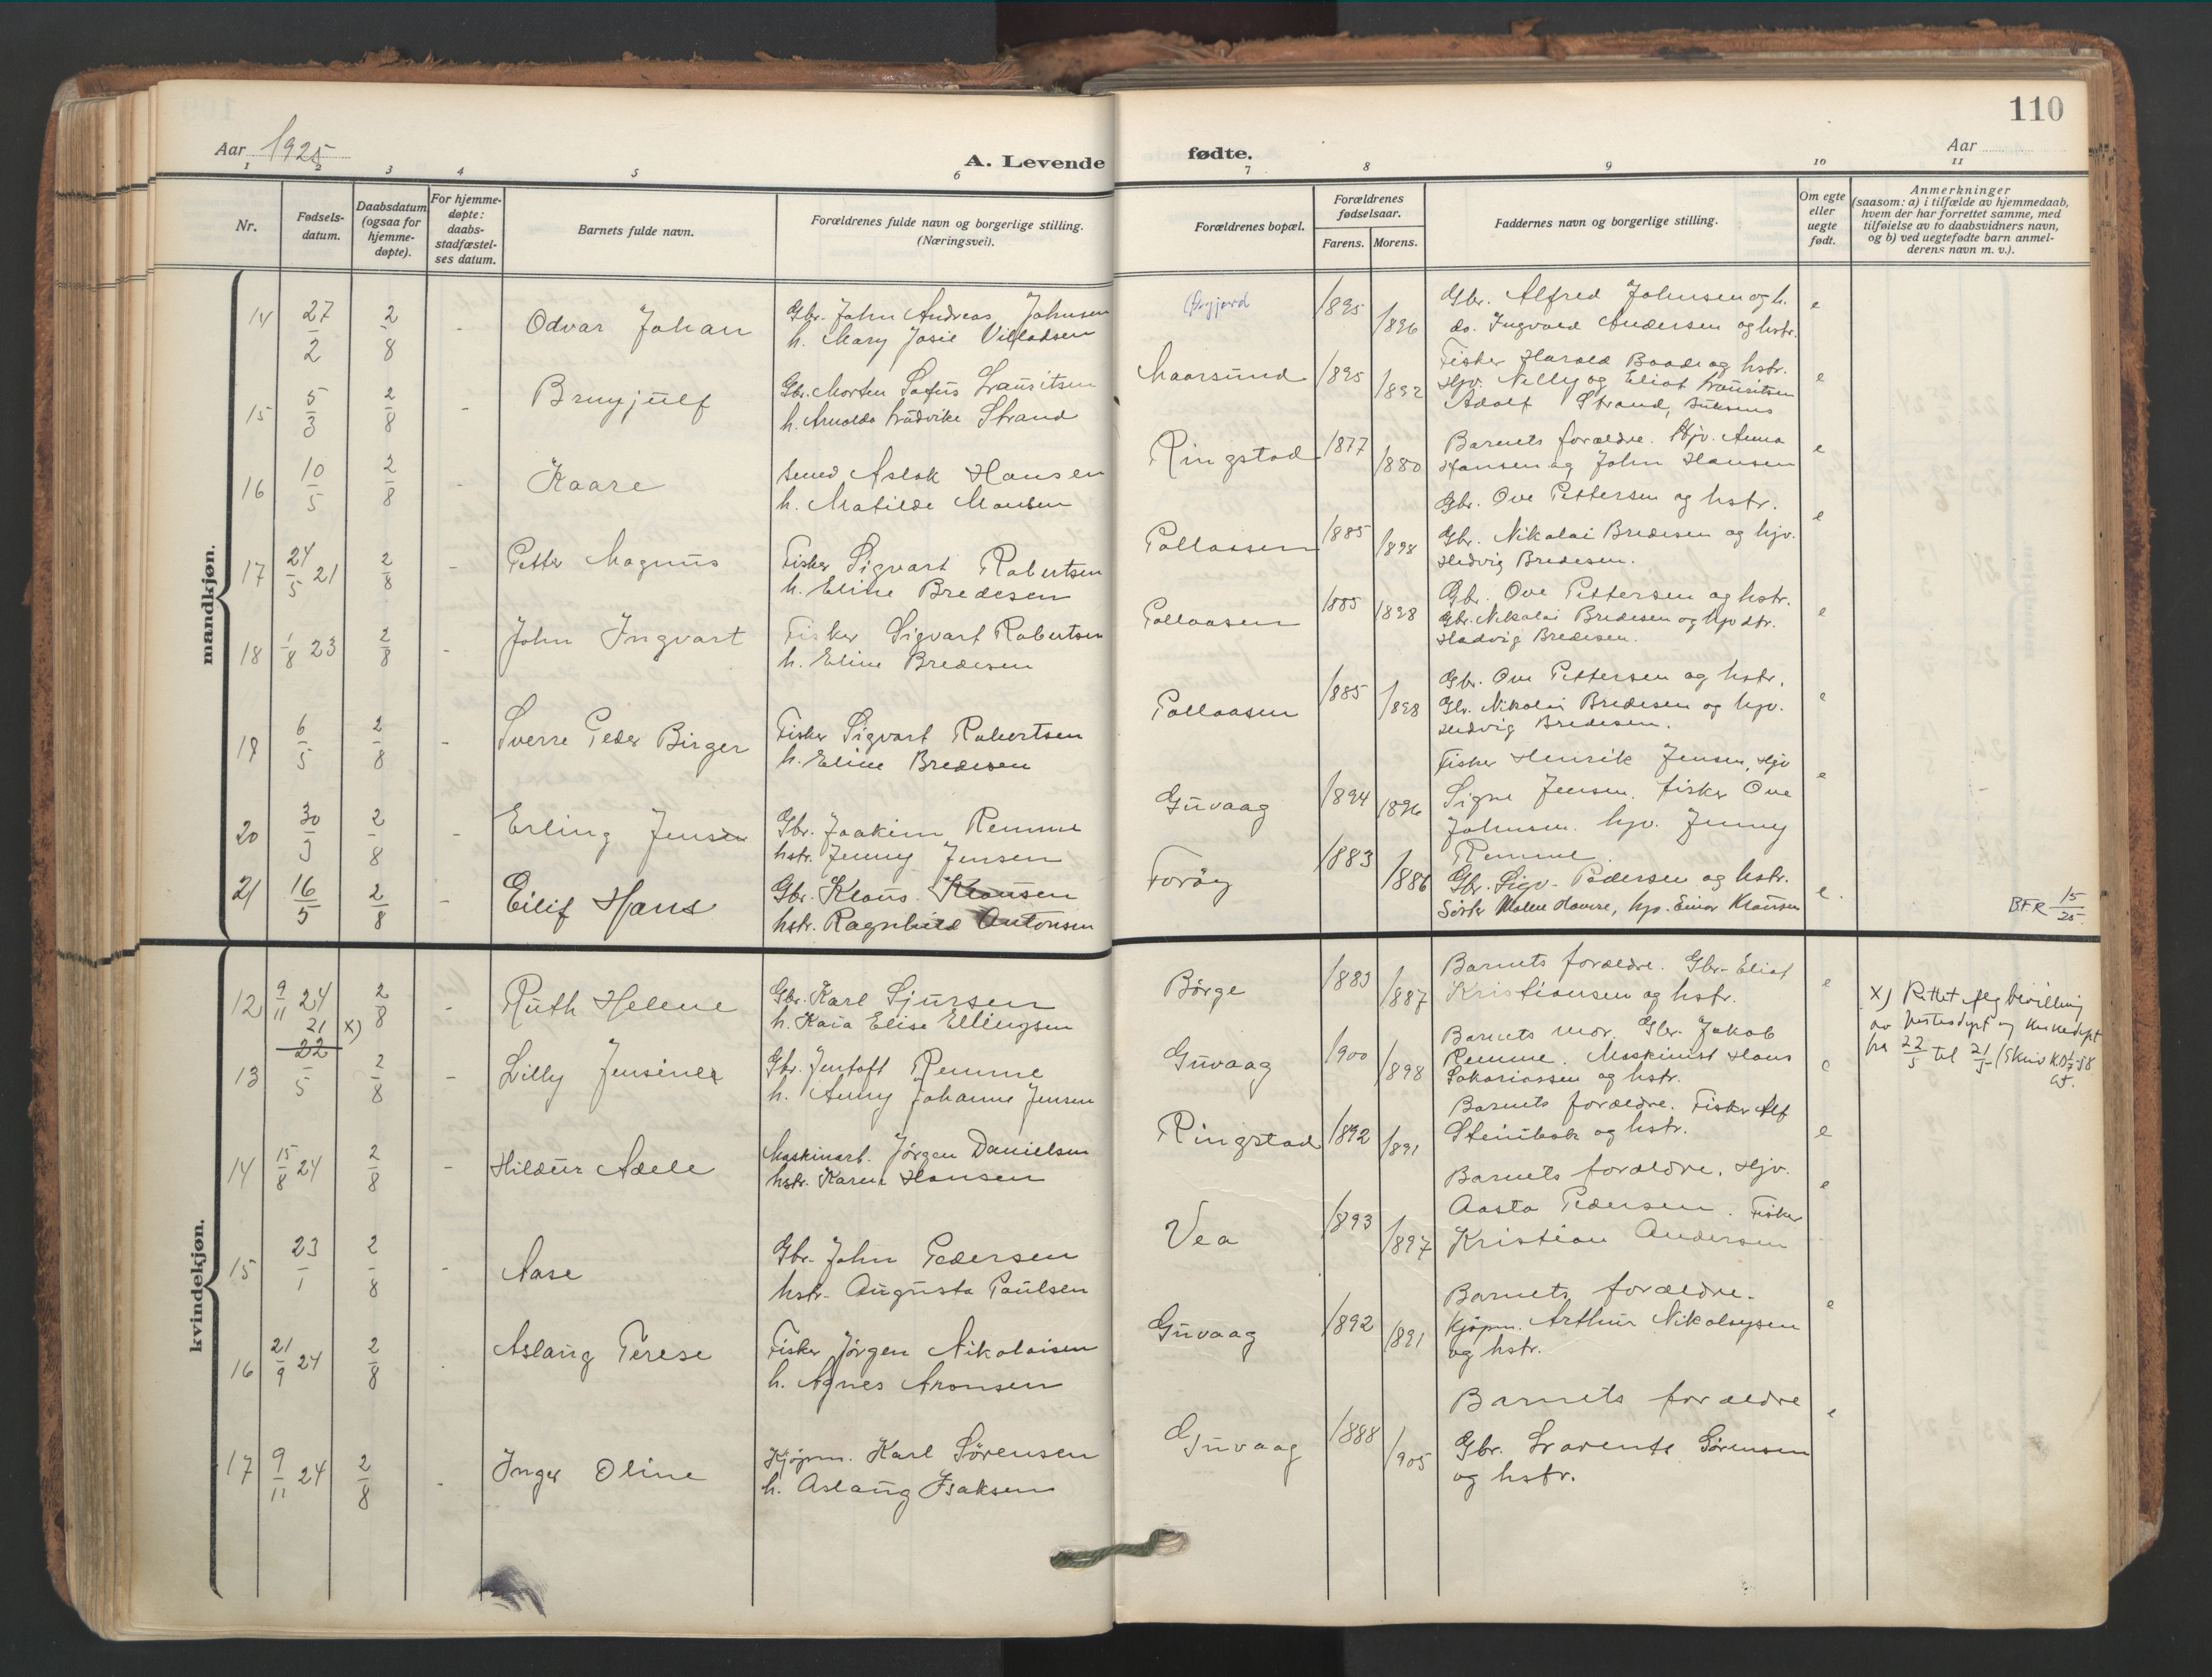 110
Aar 1925
A. Levende
fødte.
Aar
1 2 3 4 5 6 7 8 9 10 11
Nr.
Fødsels-
datum.
Daabsdatum
(ogsaa for
hjemme-
døpte).
For hjemme-
døpte:
daabs-
stadfæstel-
ses datum.
Barnets fulde navn.
Forældrenes fulde navn og borgerlige stilling.
(Næringsvei).
Forældrenes bopæl.
Forældrenes
fødselsaar.
Farens. Morens.
Faddernes navn og borgerlige stilling.
Om egte
eller
uegte
født.
Anmerkninger
(saasom: a) i tilfælde av hjemmedaab,
hvem der har forrettet samme, med
tilføielse av to daabsvidners navn,
og b) ved uegtefødte barn anmel-
derens navn m. v.).
mandkjøn.
14 27/2 2/8 - Odvar Johan
Gbr. John Andreas Johnsen
h. Mary Josie Villadsen
1895 1896
Gbr. Alfred Johnsen og h.
do. Ingvald Andersen og hstr.
e
15 5/3 2/8 - Brynjulf
Gbr. Morten Sofus Lauritsen
h. Arnolda Ludvike Strand
Maarsund 1895 1892
Fisker Harald Baade og hstr.
Hjv. Nelly og Eliot Lauritsen
Adolf Strand,
e
16 10/5 2/8 - Kaare
Smed Aslak Hansen
h. Matilde
Ringstad 1877 1880
Barnets forældre. Hjv. Anna
Hansen og John Hansen
e
17 24/5 21 2/8 - Petter Magnus
Fisker Sigvart Robertsen
h. Eline Bredesen
Pollaasen 1885 1898
Gbr. Ove Pettersen og hstr.
Gbr. Nikolai Bredesen og hjv.
Hedvig Bredesen.
e
18 1/8 23 2/8 - John Ingvart
Fisker Sigvart Robertsen
h. Eline Bredesen
Pollaasen 1885 1898
Gbr. Ove Pettersen og hstr.
Gbr. Nikolai Bredesen og hjv dtr.
Hedvig Bredesen.
e
19 6/5 2/8 - Sverre Peder Birger
Fisker Sigvart Robertsen
h. Eline Bredesen
Pollaasen 1885 1898
Gbr. Ove Pettersen og hstr.
Gbr. Nikolai Bredesen og hjv.
Hedvig Bredesen.
e
20 30/3 2/8 - Erling Jensen
Gbr. Joakim Remme
hstr. Jenny Jensen
Guvaag 1894 1896
Fisker Henrik Jensen, Hjv
Signe Jensen. fisker Ove
Johnsen. hjv. Jenny
Remme.
e
21 16/5 2/8 - Eilif Hans
Gbr. Klaus Klausen
hstr. Ragnhild Antonsen
Forøy 1883 1886
Gbr. Sigv. Pedersen og hstr.
Søster Malene Havere, hjv. Einar Klausen
e.
BFR 15/25
kvindekjøn.
12 9/11 24 2/8 - Ruth Helene
Gbr. Karl Sjursen
h. Kaia Elise Ellingsen
Börge 1883 1887
Barnets forældre. Gbr. Eliot
Kristiansen og hstr.
e
13 21 22/5 x) 2/8 - Lilly Jensine
Gbr. Jentoft Remme
h. Anny Johanne Jensen
Guvaag 1900 1898
Barnets mor, Gbr. Jakob
Remme. Maskinist Hans
Sakariassen og hstr.
e
x) Rettet flg bevilling
av
fra 22/5 til 21/5 (Skriv
14 15/8 24 2/8 - Hildur Adele
Maskinarb. Jørgen Danielsen
hstr. Karen Hansen
Ringstad 1892 1891
Barnets forældre. Fisker Alf
Steinbak og hstr.
e
15 23/1 2/8 - Aase
Gbr. John Pedersen
hstr. Augusta Paulsen
Vea 1893 1897
Barnets forældre. Hjv.
Aasta Pedersen. Fisker
Kristian Andersen
e
16 21/9 24 2/8 Aslaug Terese
Fisker Jørgen Nikolaisen
h. Agnes Aronsen
Guvaag 1892 1891
Barnets forældre.
Kjøpm. Arthur Nikolaysen
og hstr.
e
17 9/11 24 2/8 - Inger Oline
Kjøpm. Karl Sørensen
h. Aslaug Isaksen
Guvaag 1888 1905
Barnets forældre
Gbr. Lorents Sørensen
og hstr.
e